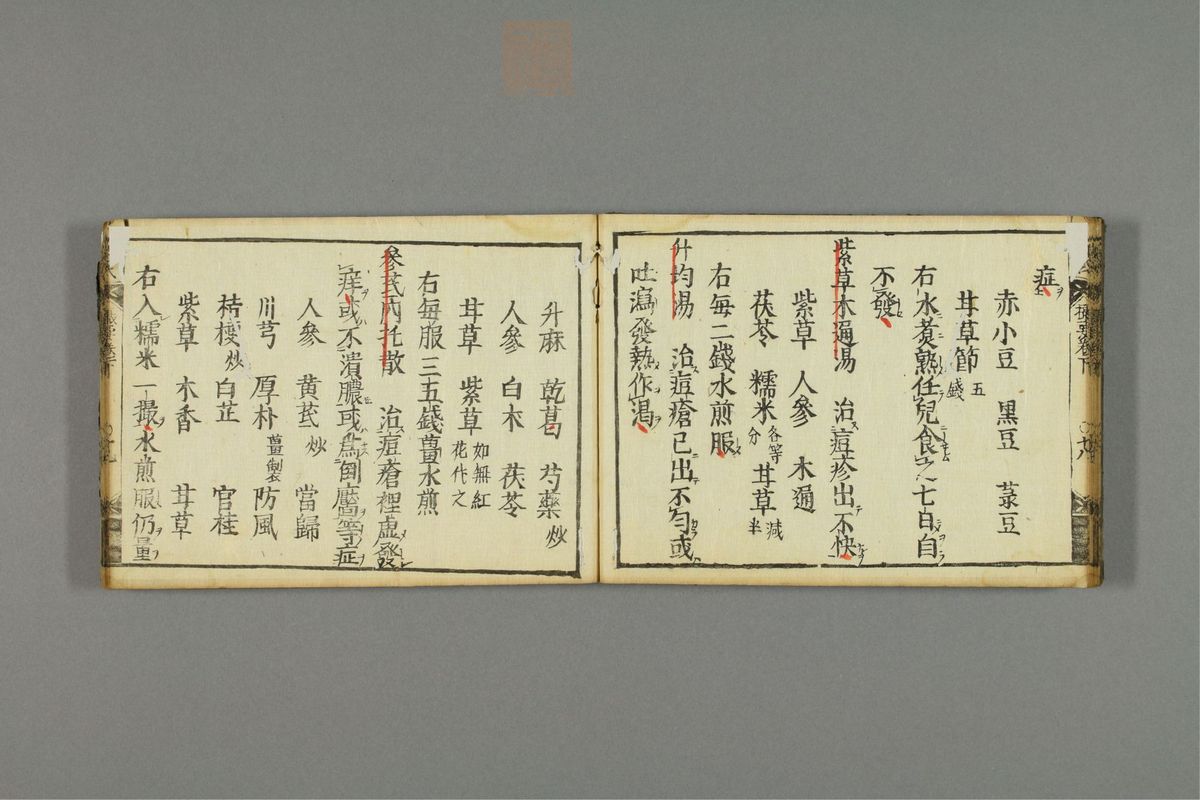 症
赤小豆 黒豆 菉豆
甘草節 五錢
右水煑熟任兒食之七日自
不發
紫草木通湯 治痘疹出不快
紫草 人參 木通
茯苓 糯米 各等分 甘草 减半
右毎二錢水煎服
升均湯 治痘瘡已出不匀或
吐瀉發熱作渴
升麻 乾葛 芍藥 炒
人參 白朮 茯苓
甘草 紫草 如無紅花代之
右毎服三五錢薑水煎
參芪內托散 治痘瘡裡虚發
痒或不潰膿或爲倒靨等症
人參 黄芪 炒 當歸
川芎 厚朴 薑製 防風
桔梗 炒 白芷 官桂
紫草 木香 甘草
右入糯米一撮水煎服仍量